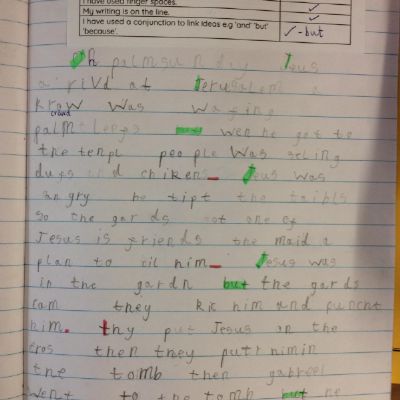 I have used finger spaces.
My writing is on the line.
I have used a conjunction to link ideas e.g 'and' 'but'
'because'.
✓-but
On palmsunday Jesus
a rivd at Jerusalem a
Krow was waf ing
crowd
palm leefs wen he got to
the templ people was seling
dufs and chikens Jesus was
angry he tipt the taibls
so the gar ds got one of
Jesus is friends the maid a
plan to cil him Jesus was
in the gardn but the gards
cam they kic him and puncht
him. thy put Jesus on the
cros then they putt himin
the tomb then gabreel
went to the tomb but he